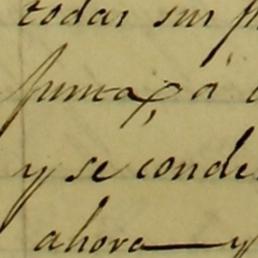 todas sus
Junta, á
y se conde
ahora — y